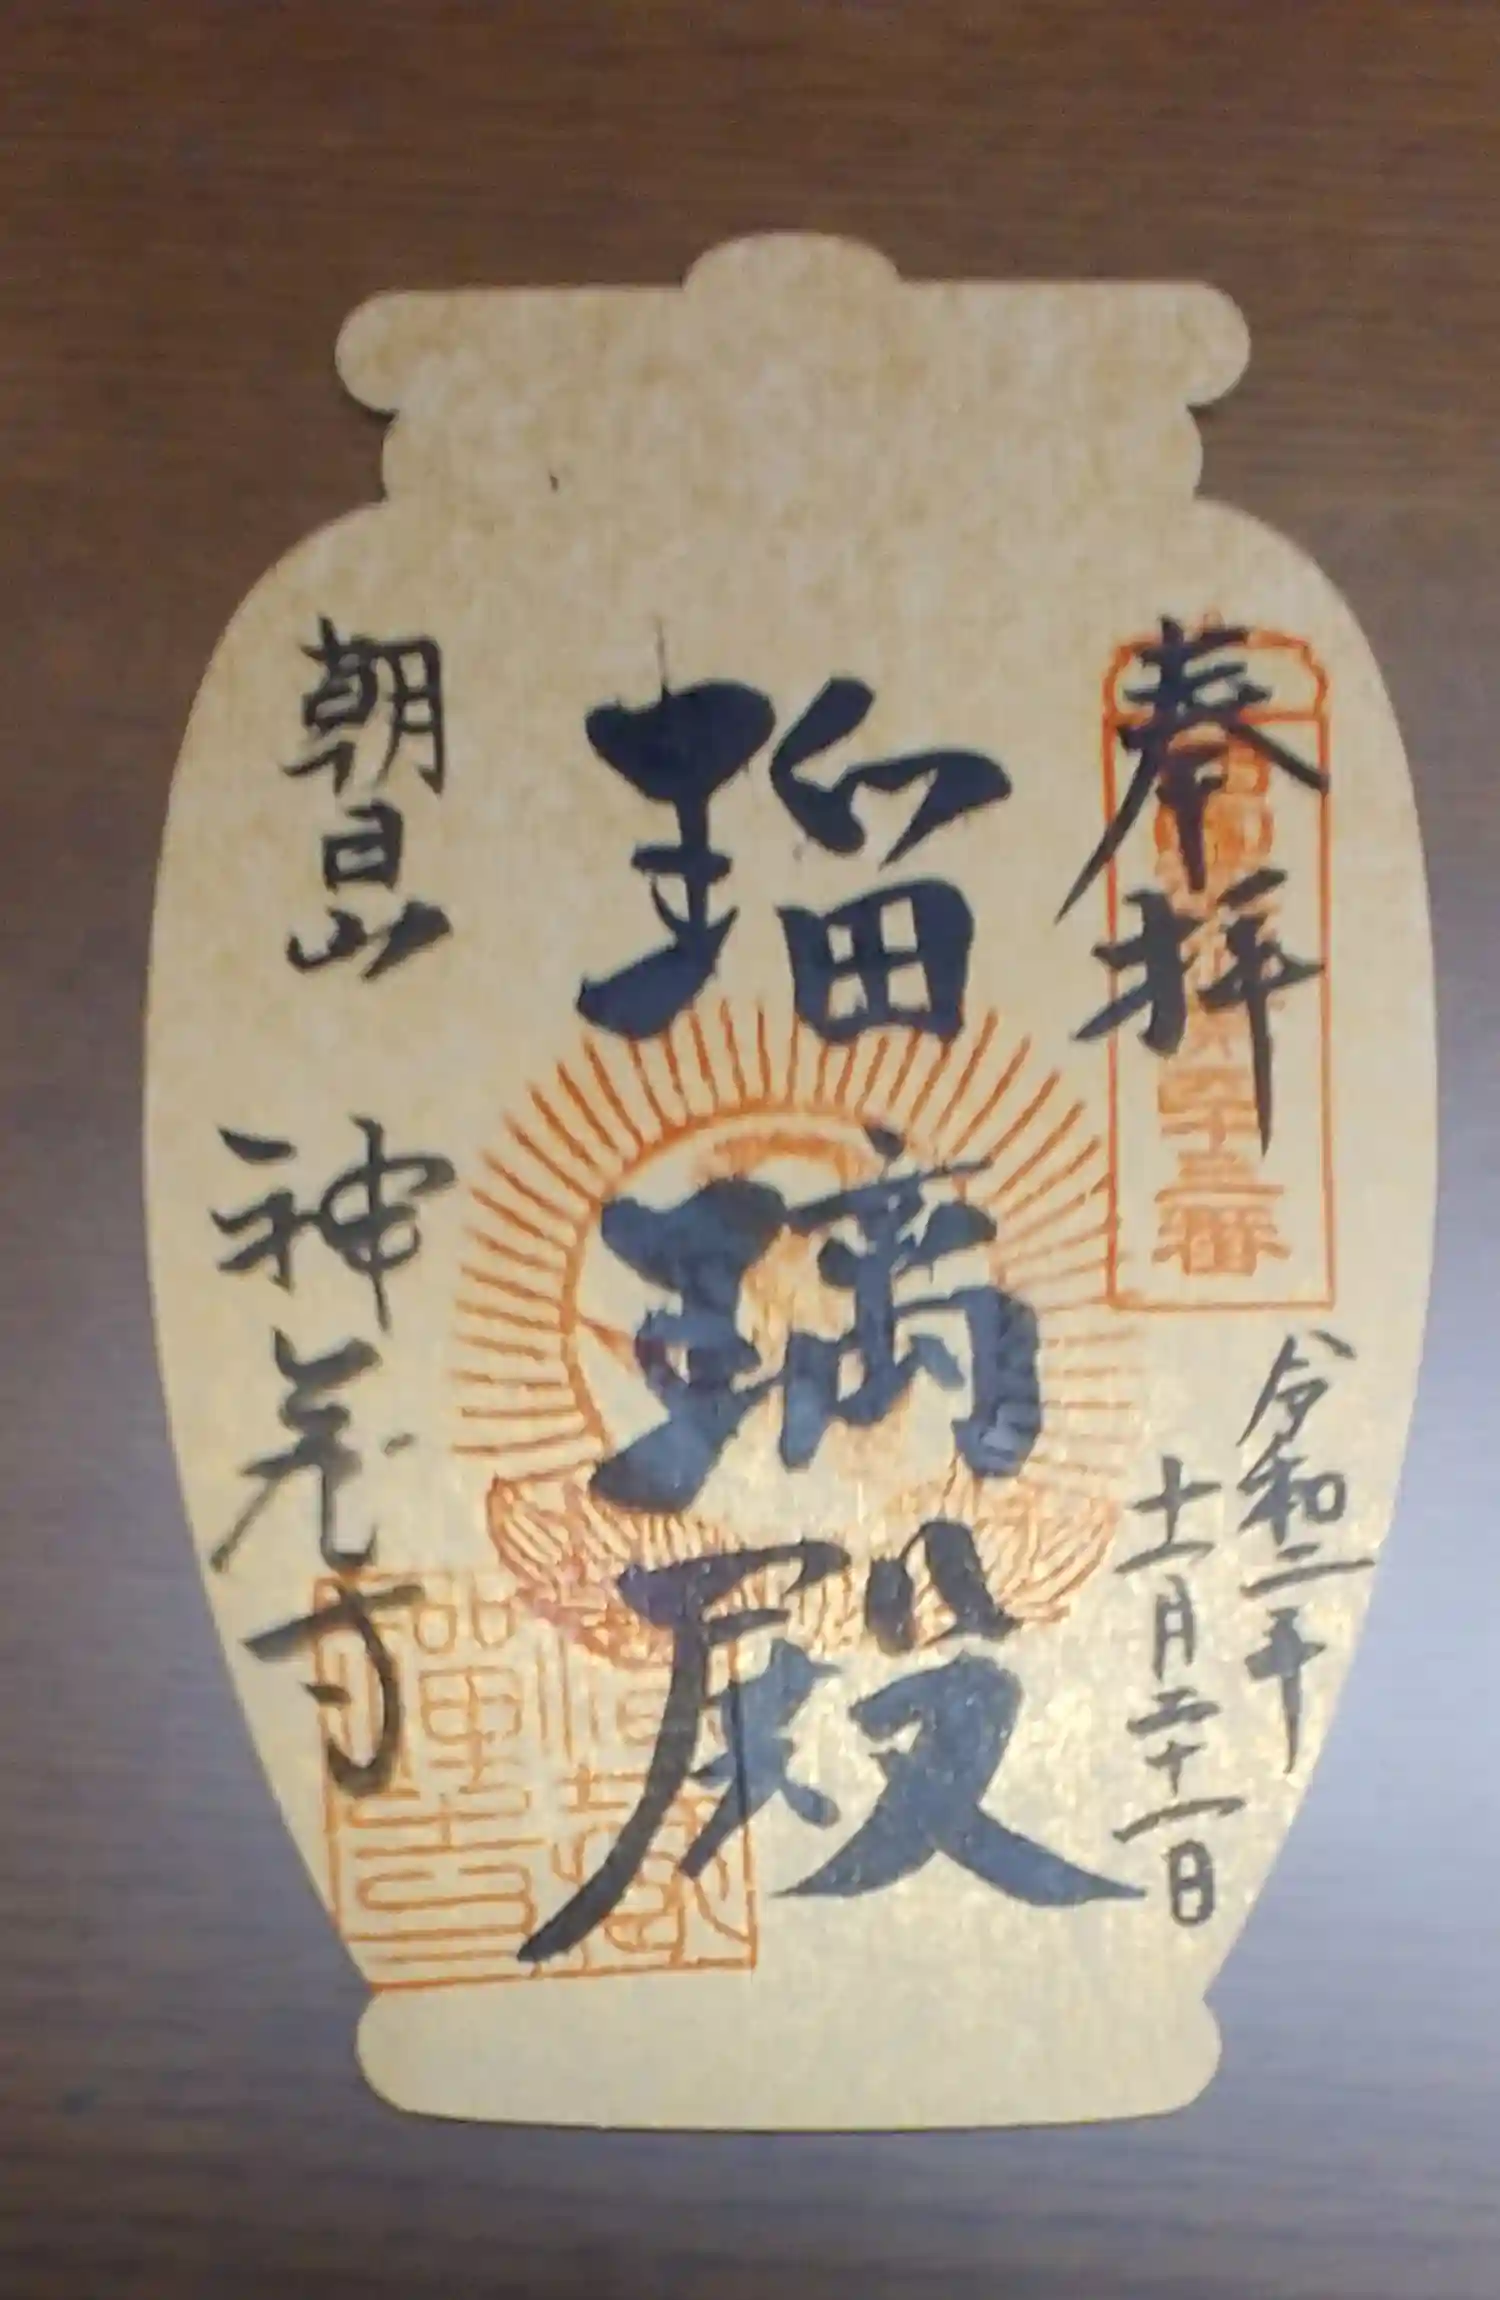 奉拝
四十三番
令和二年
十一月二十一日
瑠璃殿
朝日山 神蔵寺